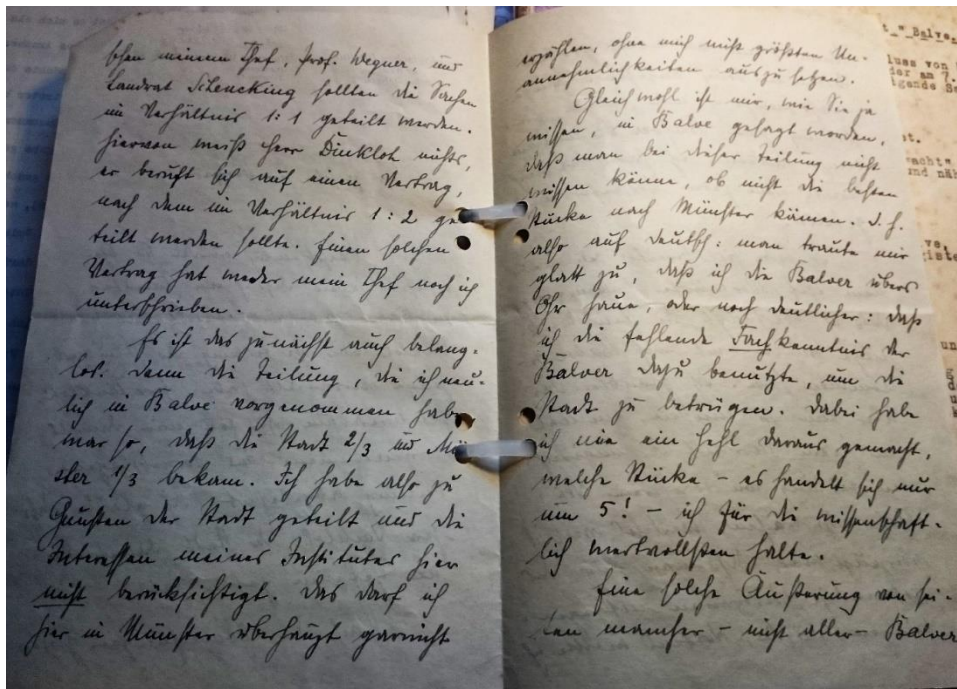 schen meinem Chef, Prof. Wegner, und
Landrat Schencking sollten die Sachen
im Verhältnis 1:1 geteilt werden.
Hiervon weiß Herr Dinkloh nichts,
er beruft sich auf einen Vertrag,
nach dem im Verhältnis 1:2 ge
teilt werden sollte. Einen solchen
Vertrag hat weder mein Chef noch ich
unterschrieben.
Es ist das zunächst auch belang-
los. Denn die Teilung, die ich neu-
lich in Balve vorgenommen habe,
war so, daß die Stadt 2/3 und Mün
ster 1/3 bekam. Ich habe also zu
Gunsten der Stadt geteilt und die
Interessen meines Institutes hier
nicht berücksichtigt. Das darf ich
hier in Münster überhaupt garnicht
erzählen, ohne mich nicht größten Un-
annehmlichkeiten auszusetzen.
Gleichwohl ist mir, wie Sie ja
wissen, in Balve gesagt worden,
daß man bei dieser Teilung nicht
wissen könne, ob nicht die besten
Stücke nach Münster kämen. D.h.
also auf deutsch: man traute mir
glatt zu, daß ich die Balver übers
Ohr haue, oder noch deutlicher: daß
ich die fehlende Fachkenntnis der
Balver dazu benutzte, um die
Stadt zu betrügen. Dabei habe
ich nie ein Hehl daraus gemacht,
welche Stücke - es handelt sich nur
um 5! - ich für die wissenschaft-
lich wertvollsten halte.
Eine solche Äußerung von sei-
ten mancher - nicht aller - Balver
t_"_Balve
luss von
der am 7.